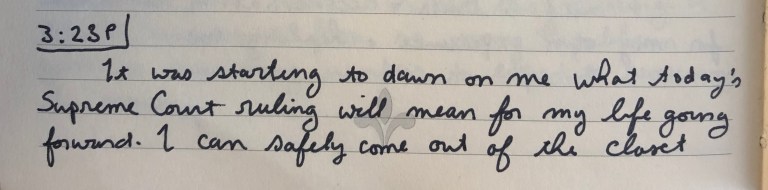 3:23P
It was starting to dawn on me what today's
Supreme Court ruling will mean for my life going
forward. I can safely come out of the closet